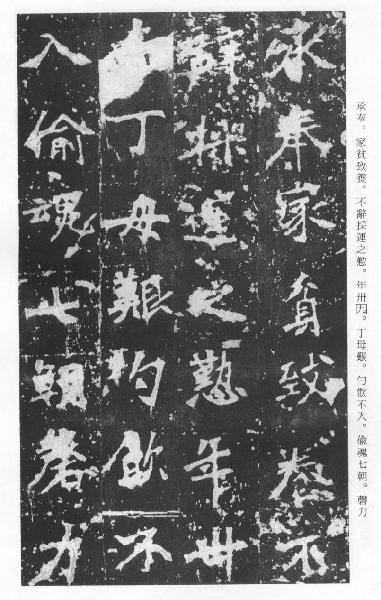 承奉。家貧致養。不辭採運之懃。年卅丙。丁母艱。勺飲不入。偷魂七朝。磬力
承奉家貧致養不
辭採運之懃年卅
丁母艱杓飲不
入偷魂七朝磬力